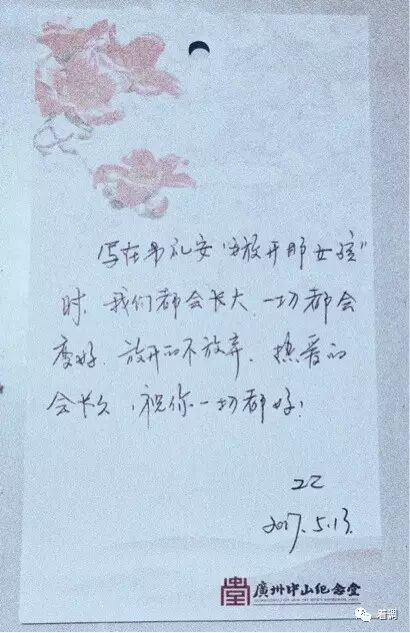 写在韦礼安《放开那女孩》
时,我们都会长大,一切都会
变好,放开的不放弃,热爱的
会长久,祝你一切都好!
2017.5.13.
廣州中山纪念堂
若调